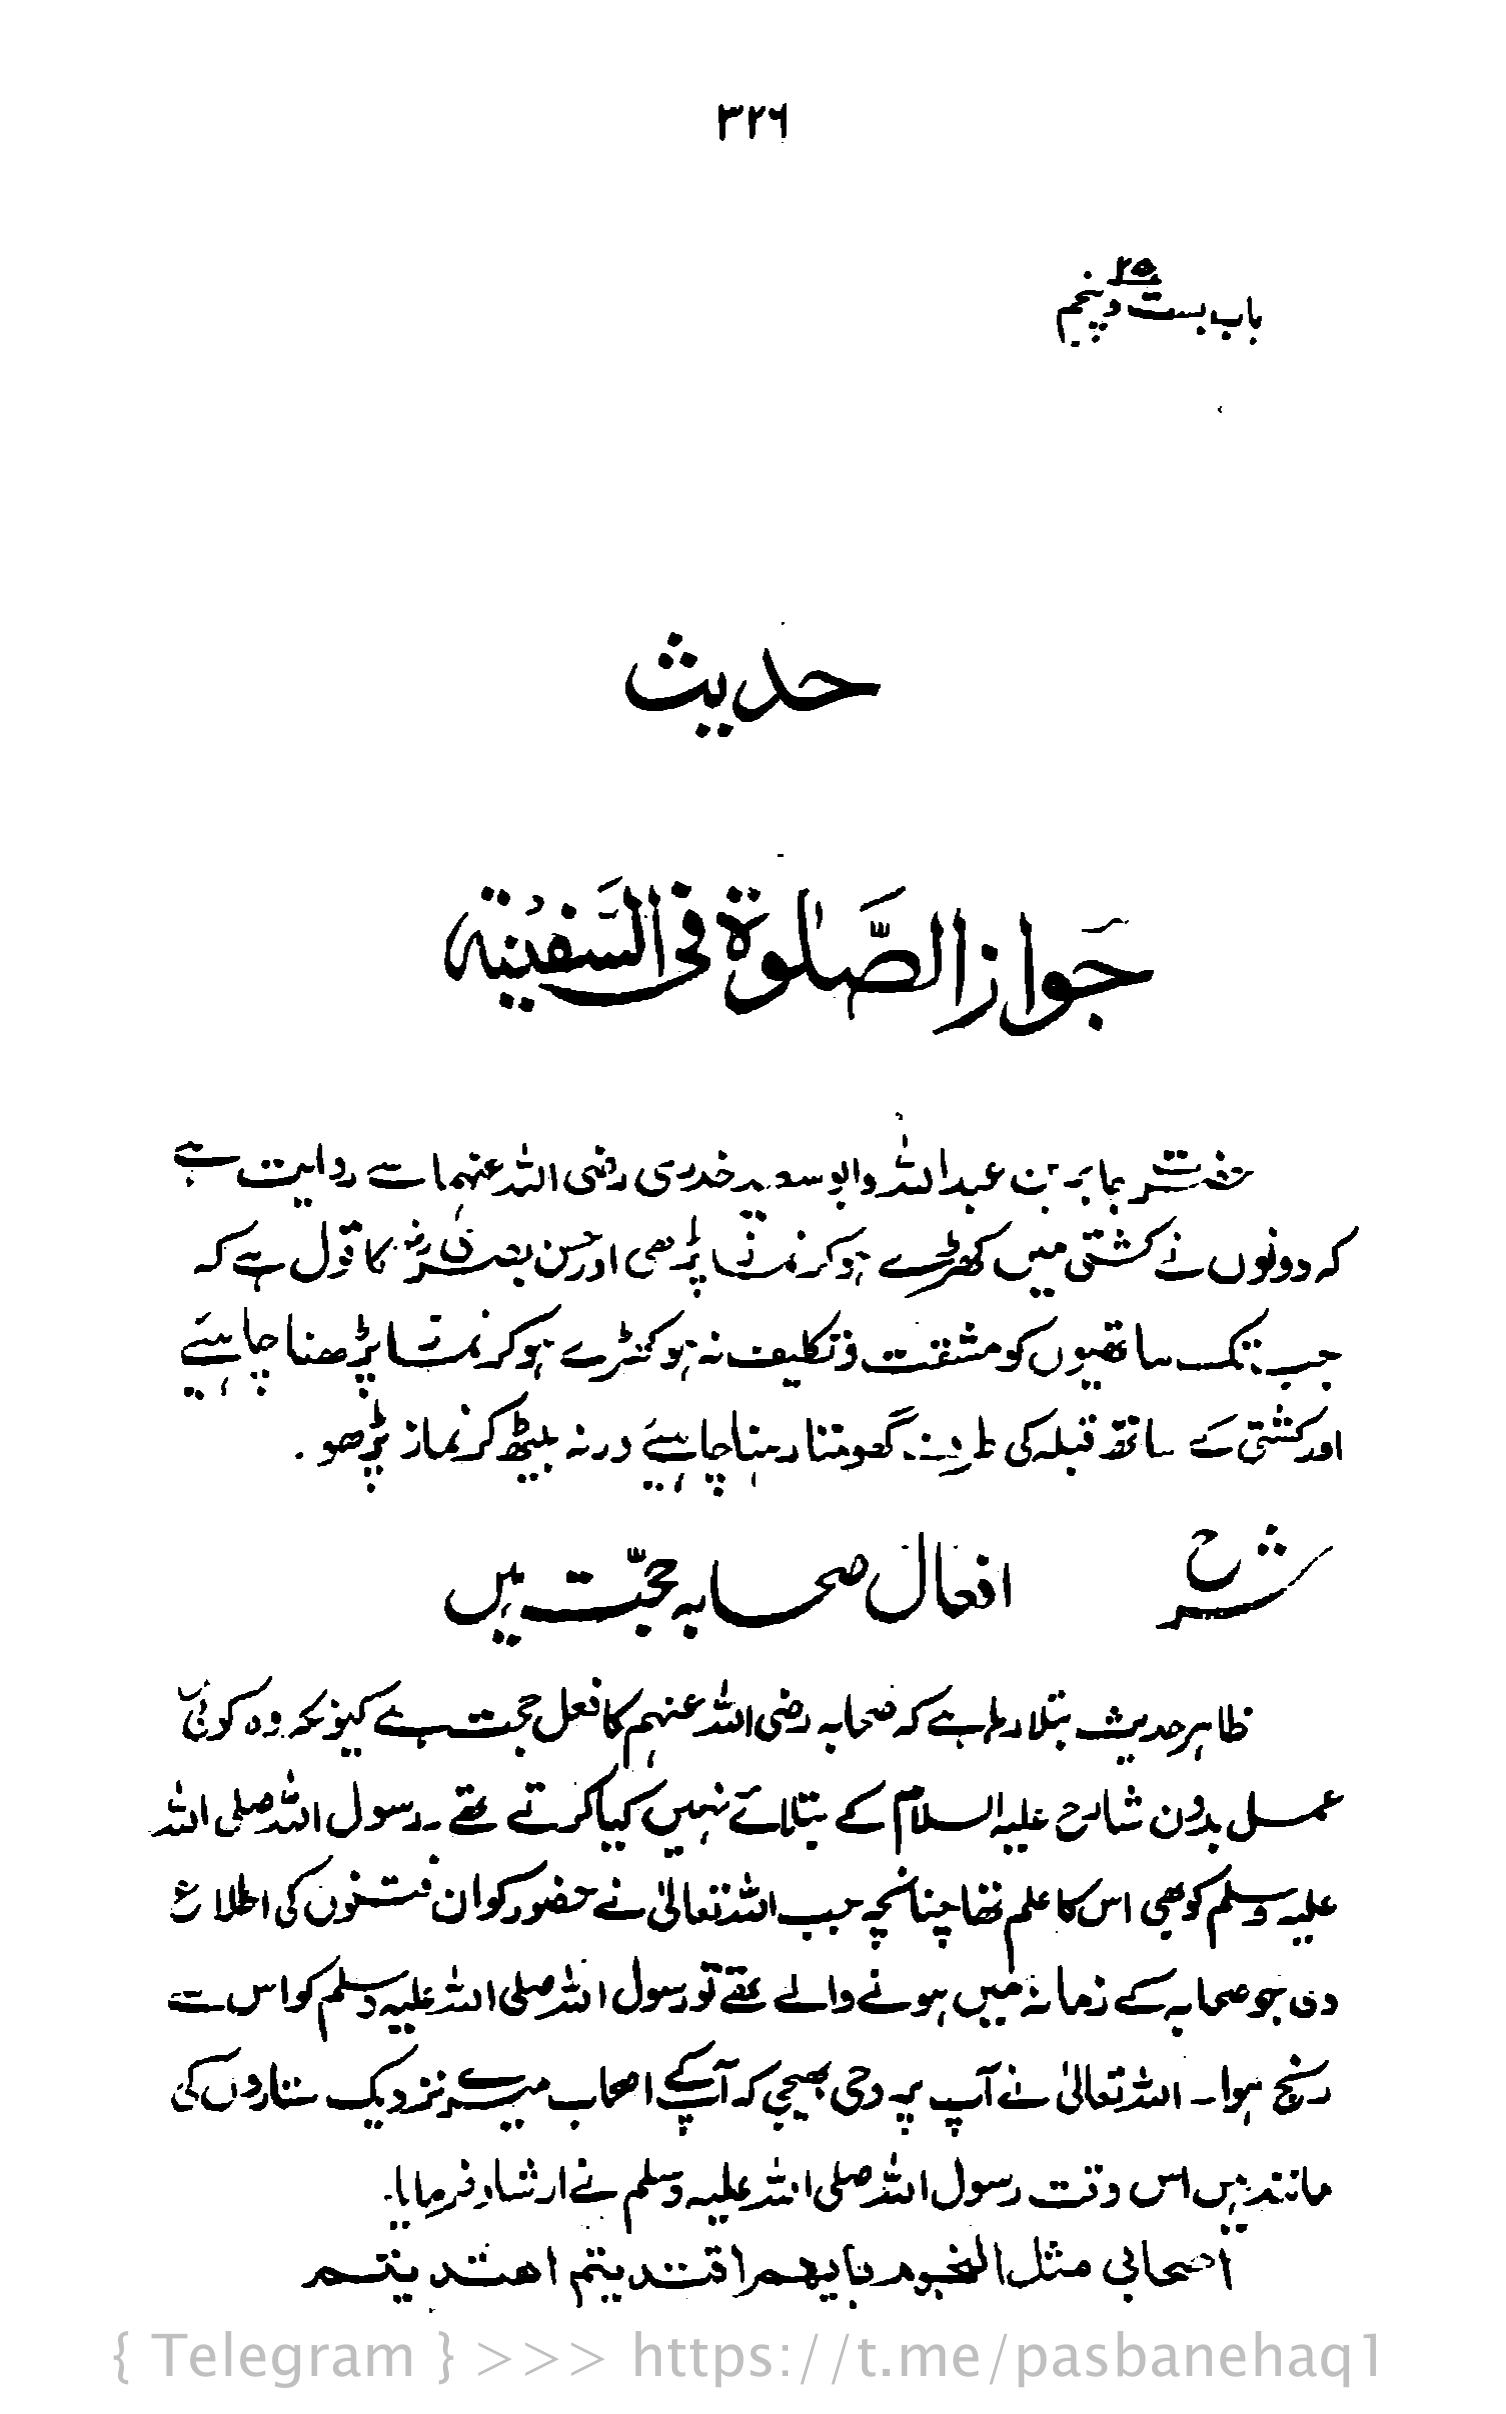 ۳۲۶
۲۵
باب بست و پنجم
حدیث
جَوازُ الصَّلٰوة فی السَّفِیْنَة
حضرت جابر بن عبداللہ وابو سعید خدری رضی اللہ عنہما سے روایت ہے
کہ دونوں نے کشتی میں کھڑے ہوکر نماز پڑھی اور حسن بصری رضؓ کا قول ہے کہ
جب تک ساتھیوں کو مشقت و تکلیف نہ ہو کھڑے ہوکر نماز پڑھنا چاہیئے
اور کشتی کے ساتھ قبلہ کی طرف گھومتا رہنا چاہیئے ورنہ بیٹھ کر نماز پڑھو۔
شرح
افعال صحابہ حجّت ہیں
ظاہر حدیث بتلا رہا ہے کہ صحابہ رضی اللہ عنہم کا فعل حجت ہے کیونکہ وہ کوئی
عمل بدون شارع علیہ السلام کے بتلائے نہیں کیا کرتے تھے۔ رسول اللہ صلی اللہ
علیہ وسلم کو بھی اس کا علم تھا چنانچہ جب اللہ تعالیٰ نے حضور کو ان فتنوں کی اطلاع
دی جو صحابہ کے زمانہ میں ہونے والے تھے تو رسول اللہ صلی اللہ علیہ وسلم کو اس سے
رنج ہوا۔ اللہ تعالیٰ نے آپ پر وحی بھیجی کہ آپ کے اصحاب میرے نزدیک ستاروں کی
مانند ہیں اس وقت رسول اللہ صلی اللہ علیہ وسلم نے ارشاد فرمایا۔
اصحابی مثل النجوم بایهم اقتدیتم اهتدیتم
{ Telegram } >>> https://t.me/pasbanehaq1